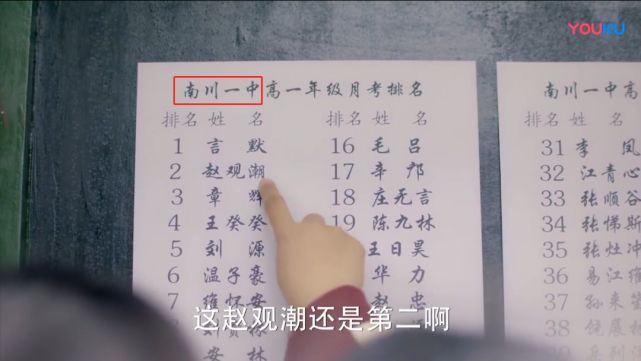 YOUKU
南川一中高一年级月考排名
排名 姓 名
1 言 默
2 赵观潮
3 章 辉
4 王癸癸
5 刘 源
6 温子豪
7 怀安
安 林
排名 姓 名
16 毛 吕
17 辛 邴
18 庄无言
19 陈九林
王日昊
华 力
赵 忠
南川一中
31 李 凤
32 江青心
33 张顺谷
34 张悌斯
35 张灶冲
36 易江维
37 孙来
38 饶展
这赵观潮还是第二啊